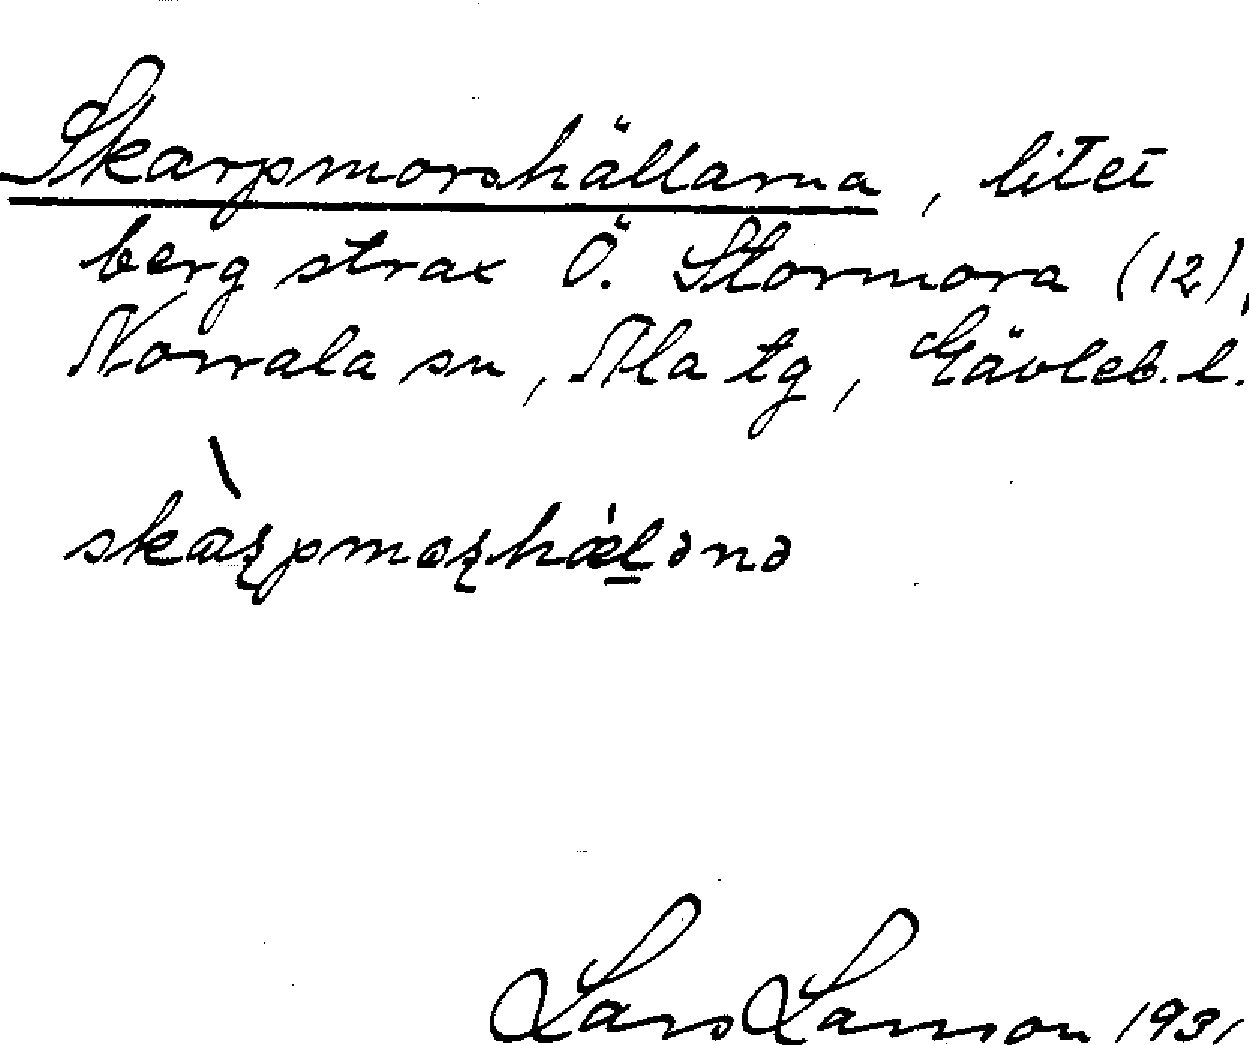 Skarpmorshällarna, litet
berg strax Ö. Stormora (12),
Norrala sn, Ala tg, Gävleb. l.
Lars Larsson 1931